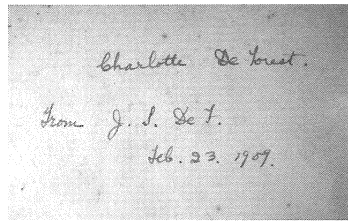 Charlotte De Forest.
From J. S. De F.
Feb. 23. 1909.